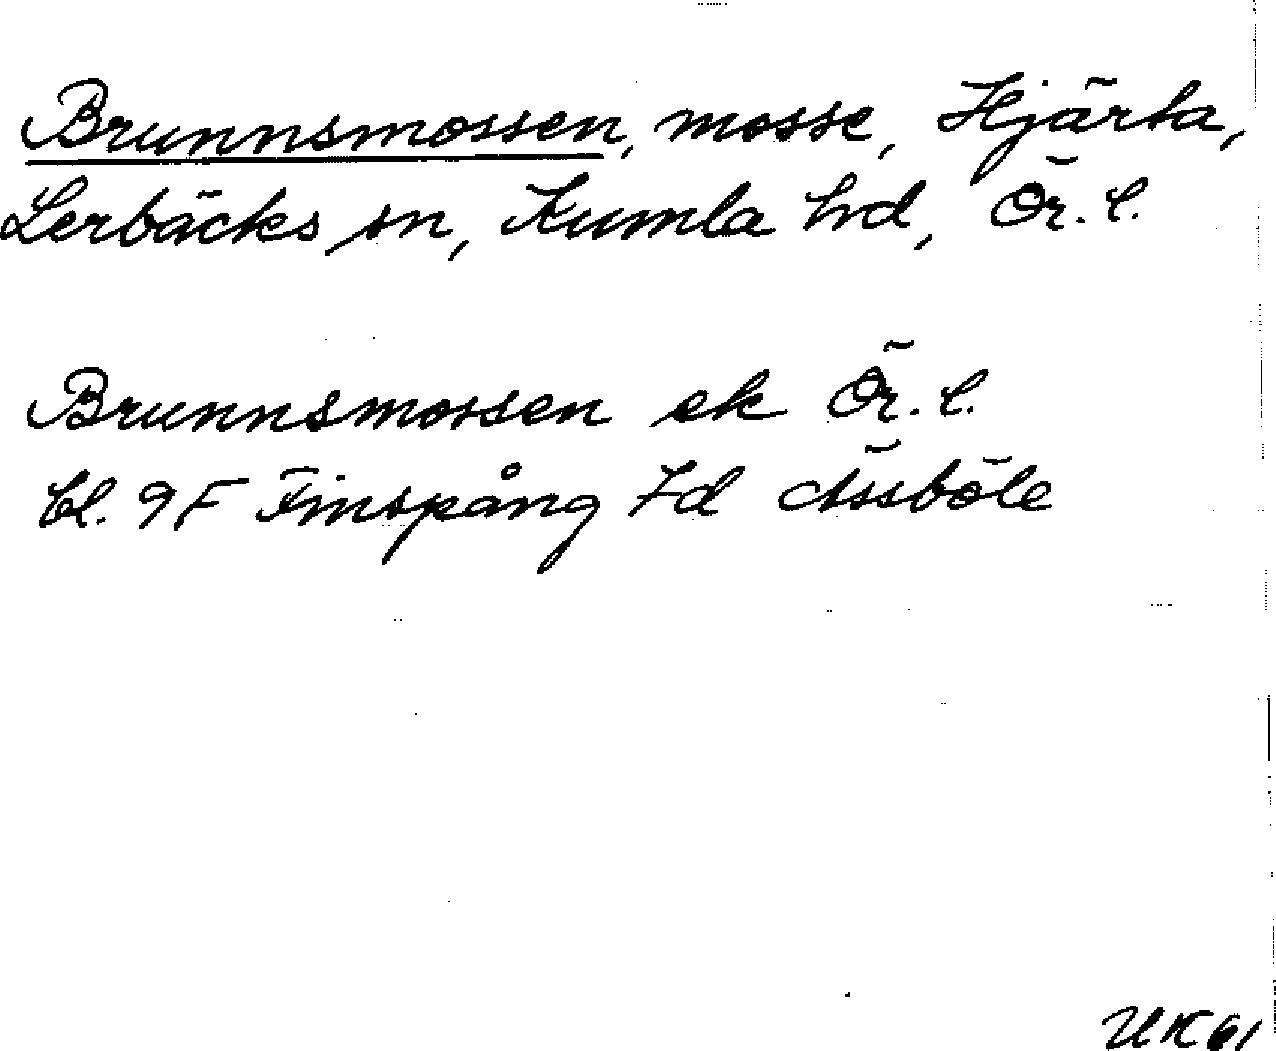 Brunnsmossen, mosse, Hjärta,
Lerbäcks sn, Kumla hd, Ör. l.
Brunnsmossen ek Ör. l.
bl. 9F Finspång 7d Åsböle
UK61